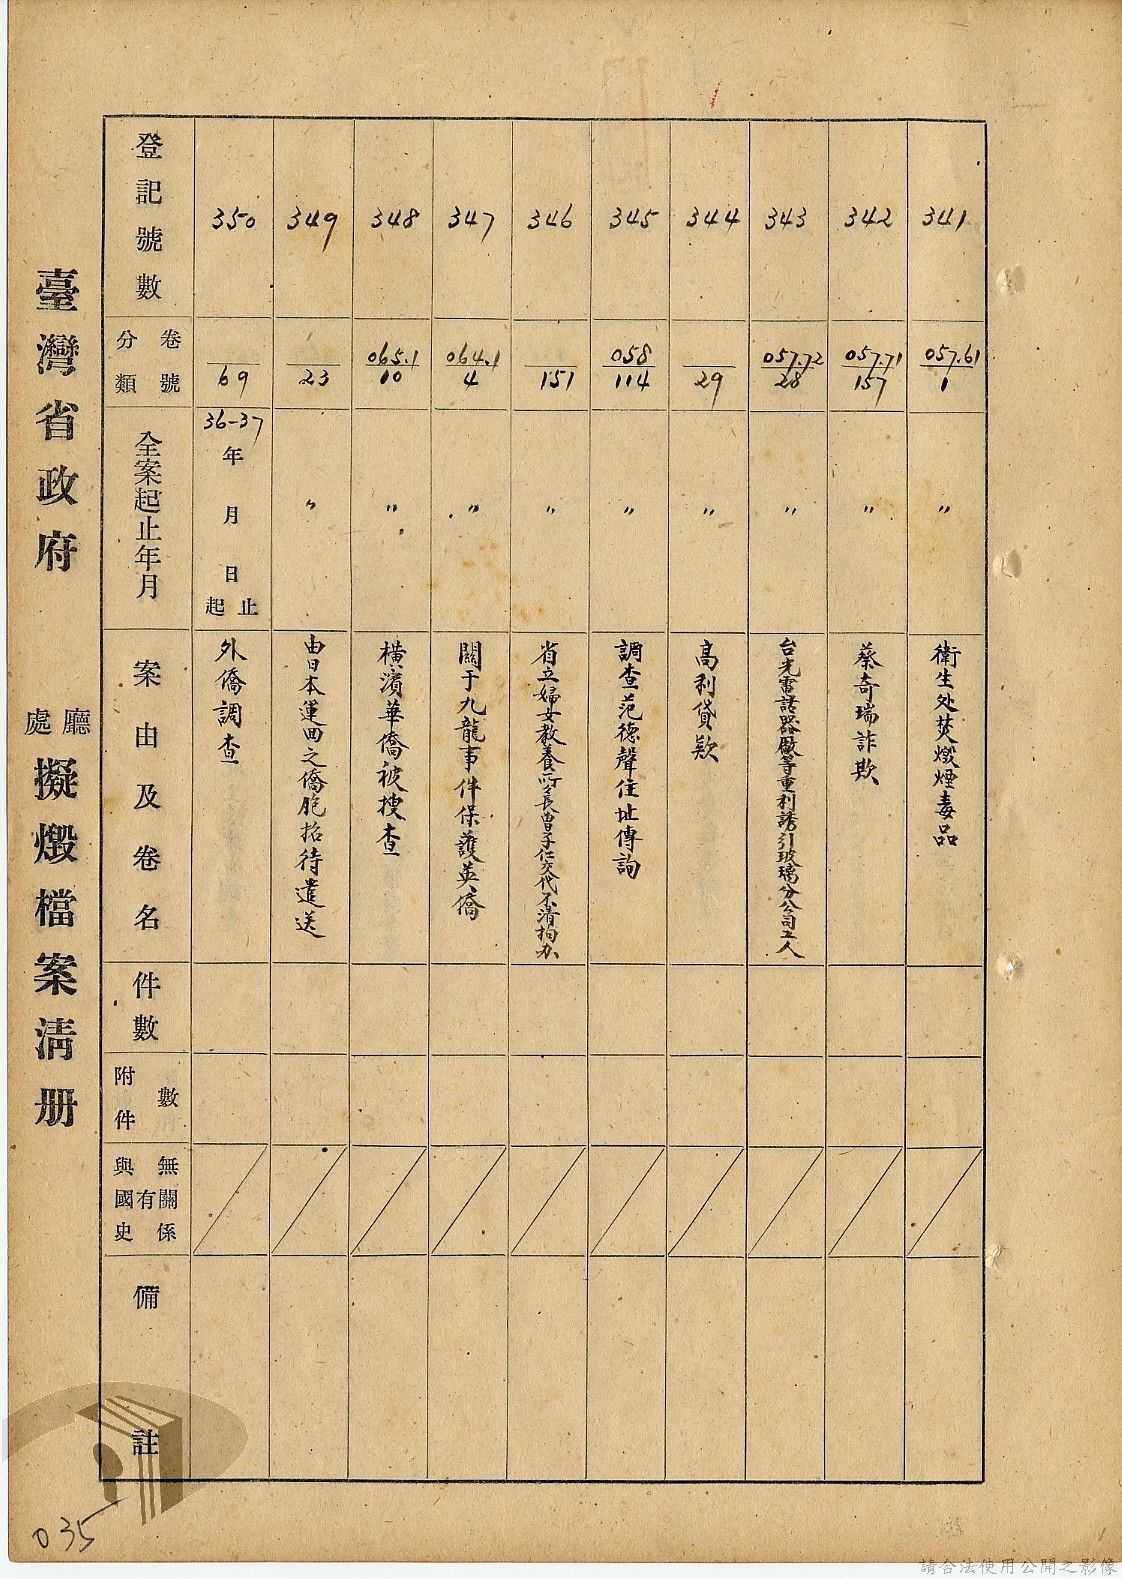 臺灣省政府 廳處 擬燬檔案清册
登記號數
卷號
分類
全案起止年月
案由及卷名
件數
附件數
與國史有無關係
備註
341
057.61
1
〃
衛生处焚燬煙毒品
342
057.71
157
〃
蔡奇瑞詐欺
343
057.72
28
〃
台光電話器廠等重利誘引玻璃分公司工人
344
29
〃
高利貸欵
345
058
114
〃
調查范德聲住址傳詢
346
151
〃
省立婦女教養所長曾子仁交代不清拘办
347
064.1
4
〃
關于九龍事件保護英僑
348
065.1
10
〃
橫濱華僑被搜查
349
23
〃
由日本運回之僑胞招待遣送
350
69
36-37
年月日
起止
外僑調查
035
請合法使用公開之影像